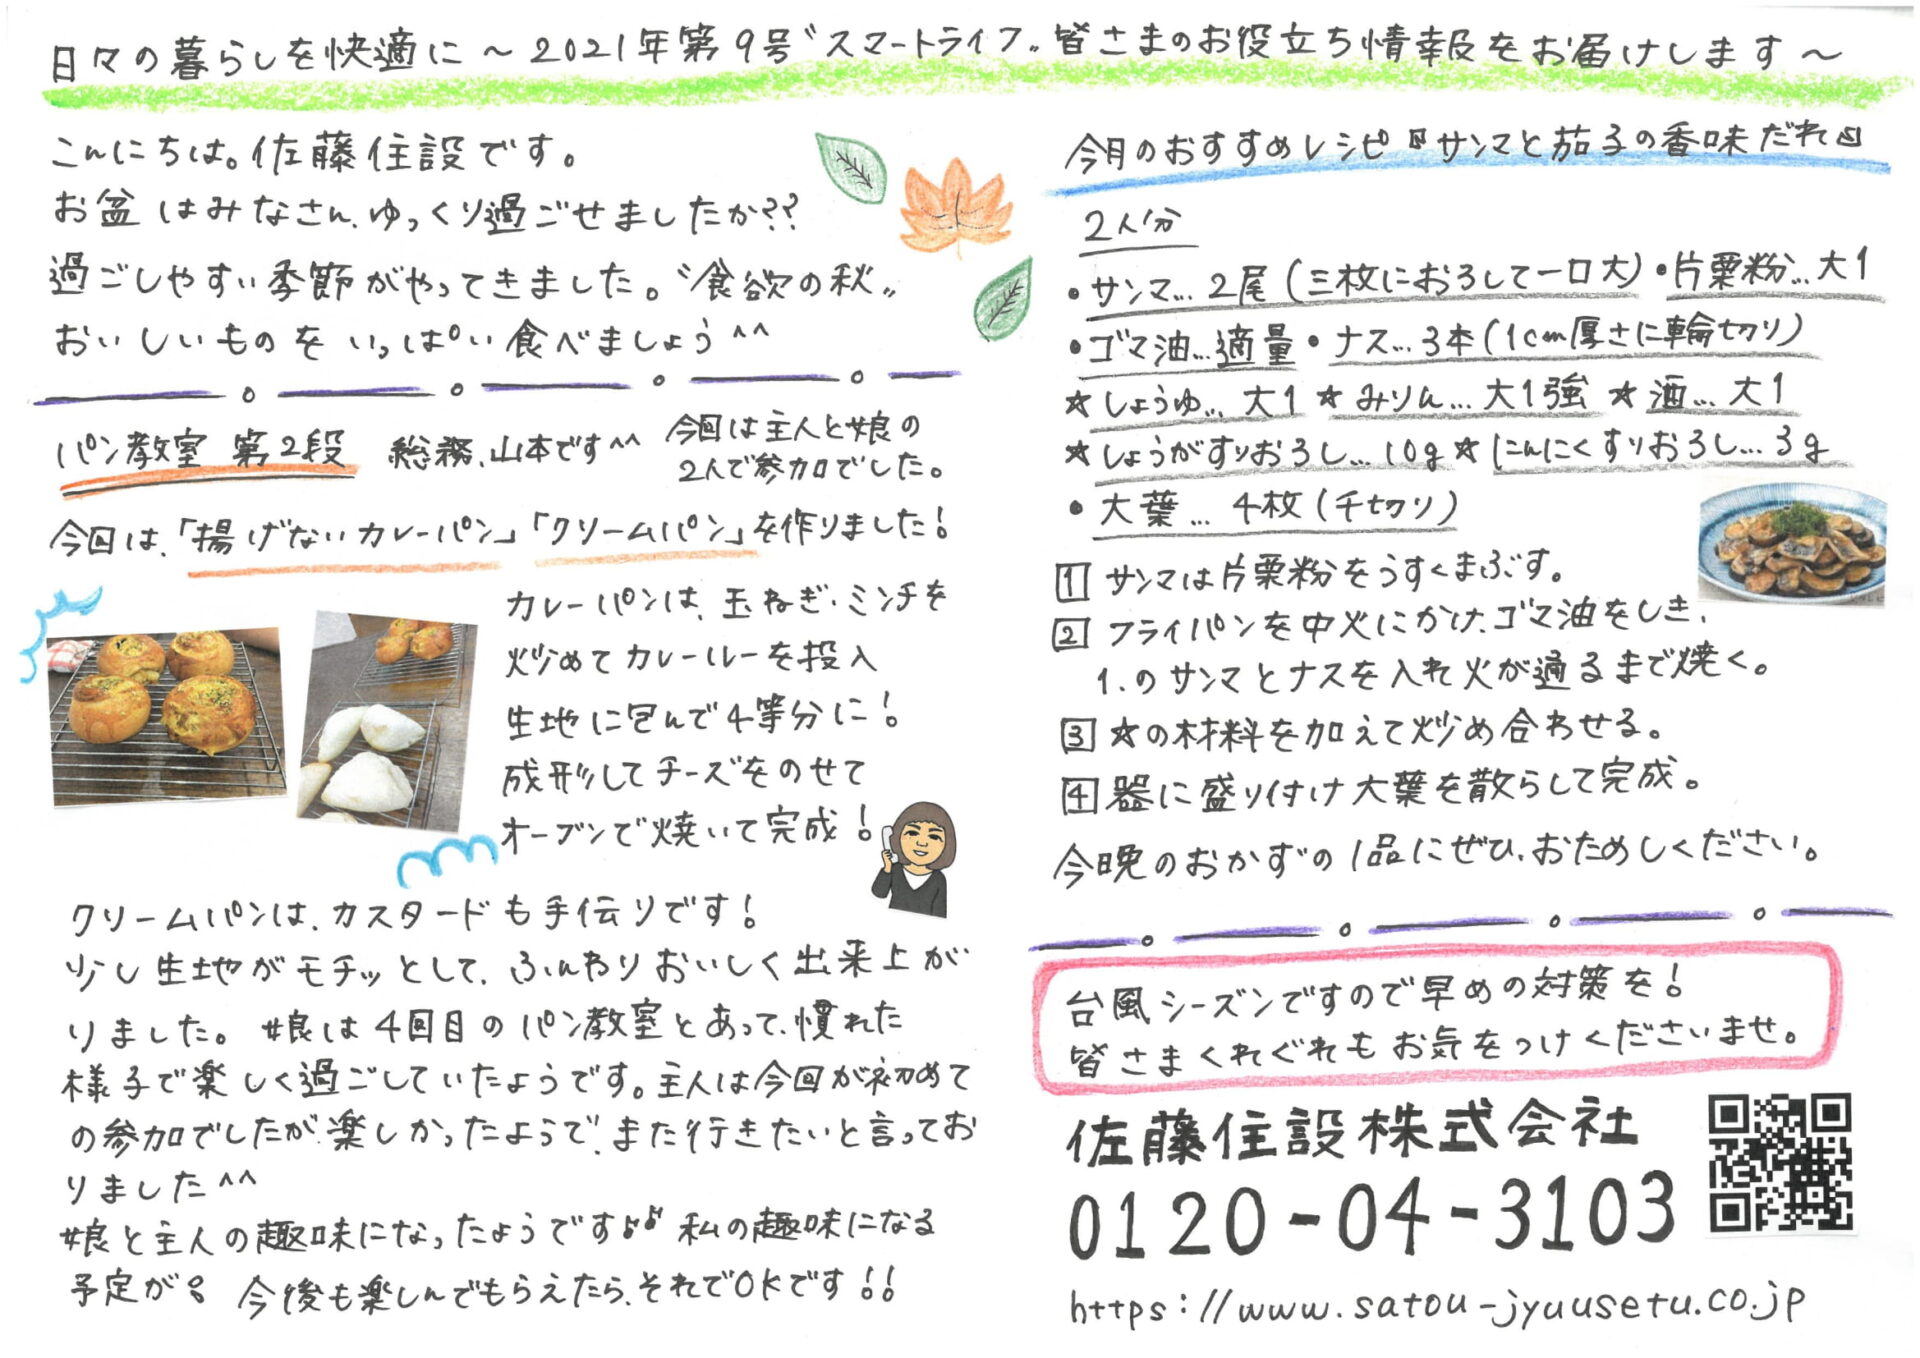 日々の暮らしを快適に～2021年第9号〝スマートライフ〟皆さまのお役立ち情報をお届けします～
こんにちは。佐藤住設です。
お盆はみなさん、ゆっくり過ごせましたか??
過ごしやすい季節がやってきました。〝食欲の秋〟
おいしいものをいっぱい食べましょう^^
パン教室 第2段 総務、山本です^^ 今回は主人と娘の
2人で参加でした。
今回は、「揚げないカレーパン」「クリームパン」を作りました!
カレーパンは、玉ねぎ・ミンチを
炒めてカレールーを投入
生地に包んで4等分に!
成形してチーズをのせて
オーブンで焼いて完成!
クリームパンは、カスタードも手伝りです!
少し生地がモチッとして、ふんわりおいしく出来上が
りました。娘は4回目のパン教室とあって、慣れた
様子で楽しく過ごしていたようです。主人は今回が初めて
の参加でしたが、楽しかったようで、また行きたいと言ってお
りました^^
娘と主人の趣味になったようです♪♪ 私の趣味になる
予定が。 今後も楽しんでもらえたら、それでOKです!!
今月のおすすめレシピ『サンマと茄子の香味だれ』
2人分
・サンマ…2尾(三枚におろして一口大)・片栗粉…大1
・ゴマ油…適量・ナス…3本(1cm厚さに輪切り)
☆しょうゆ…大1☆みりん…大1強☆酒…大1
☆しょうがすりおろし…10g☆にんにくすりおろし…3g
・大葉…4枚(千切り)
1 サンマは片栗粉をうすくまぶす。
2 フライパンを中火にかけ、ゴマ油をしき、
1.のサンマとナスを入れ火が通るまで焼く。
3 ☆の材料を加えて炒め合わせる。
4 器に盛り付け大葉を散らして完成。
今晩のおかずの1品にぜひ、おためしください。
台風シーズンですので早めの対策を!
皆さまくれぐれもお気をつけくださいませ。
佐藤住設株式会社
0120-04-3103
https://www.satou-jyuusetu.co.jp